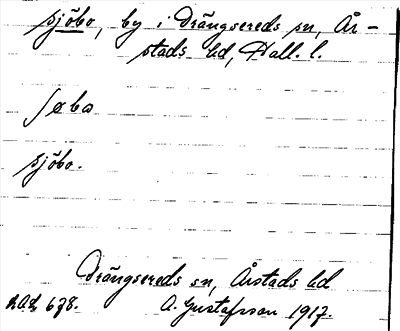 Sjöbo, by i Drängsereds sn, År-
stads hd, Hall. l.
sjöbo.
Drängsereds sn, Årstads hd
678. A. Gustafsson 1917.